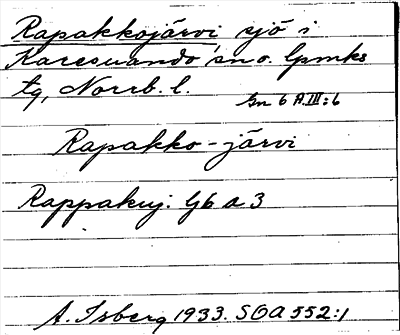 Rapakkojärvi sjö i
Karesuando sn o. lpmks
tg, Norrb. l.
Gn 6 A III:6
Rapakko-järvi
Rappakuj. Gb a 3
A. Isberg 1933. SOA 552:1